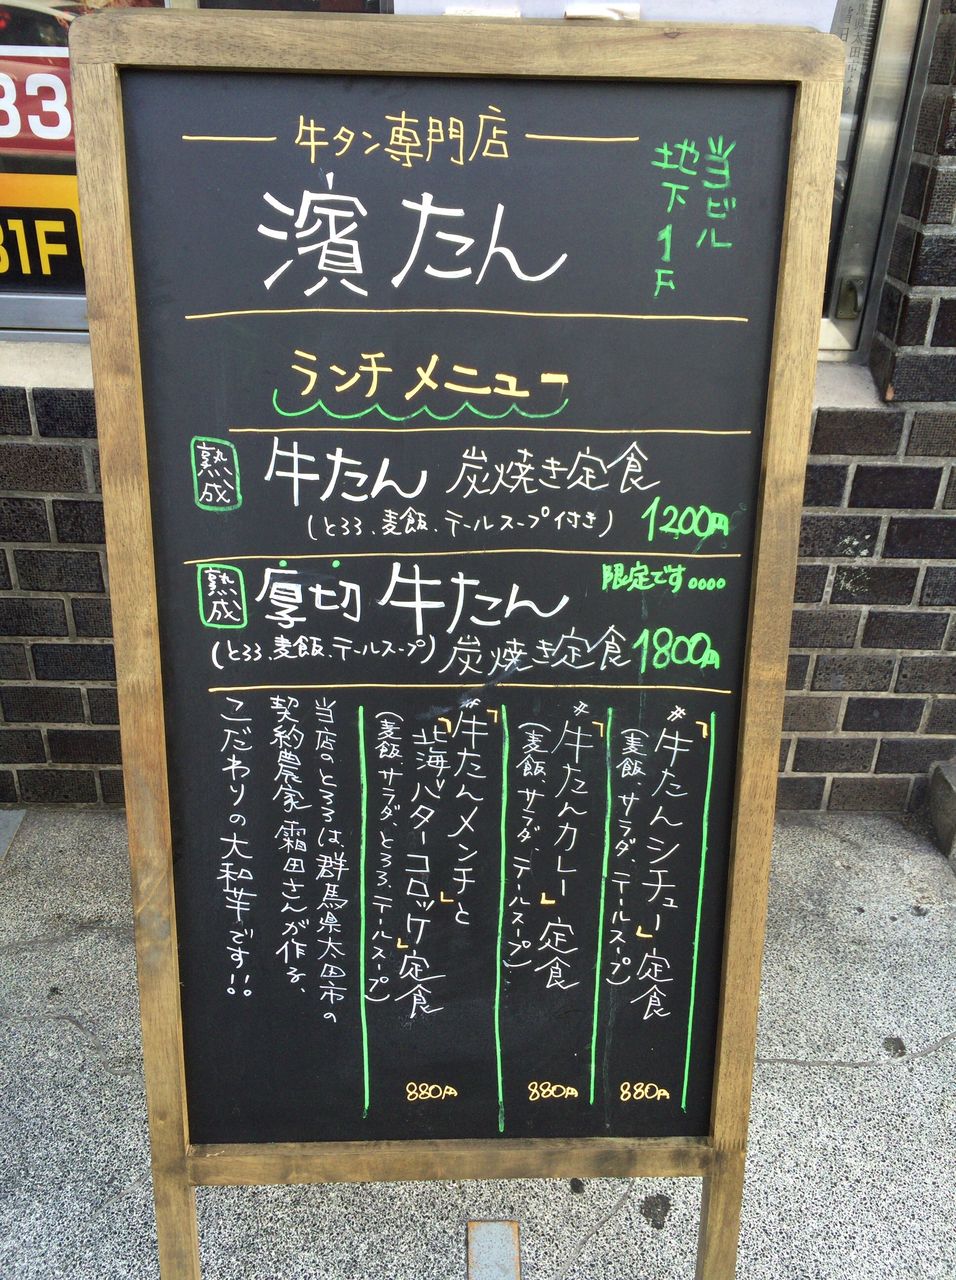 33
B1F
牛タン専門店
濱たん
当ビル
地下1F
ランチメニュー
熟成
牛たん 炭焼き定食
(とろろ、麦飯、テールスープ付き) 1200円
熟成
厚切 牛たん
限定です。。。。
(とろろ、麦飯、テールスープ) 炭焼き定食 1800円
#「牛たんシチュー」定食
(麦飯、サラダ、テールスープ)
880円
#「牛たんカレー」定食
(麦飯、サラダ、テールスープ)
880円
#「牛たんメンチと
「北海バターコロッケ」定食
(麦飯、サラダ、とろろ、テールスープ)
880円
当店のとろろは、群馬県太田市の
契約農家 霜田さんが作る、
こだわりの大和芋です!!